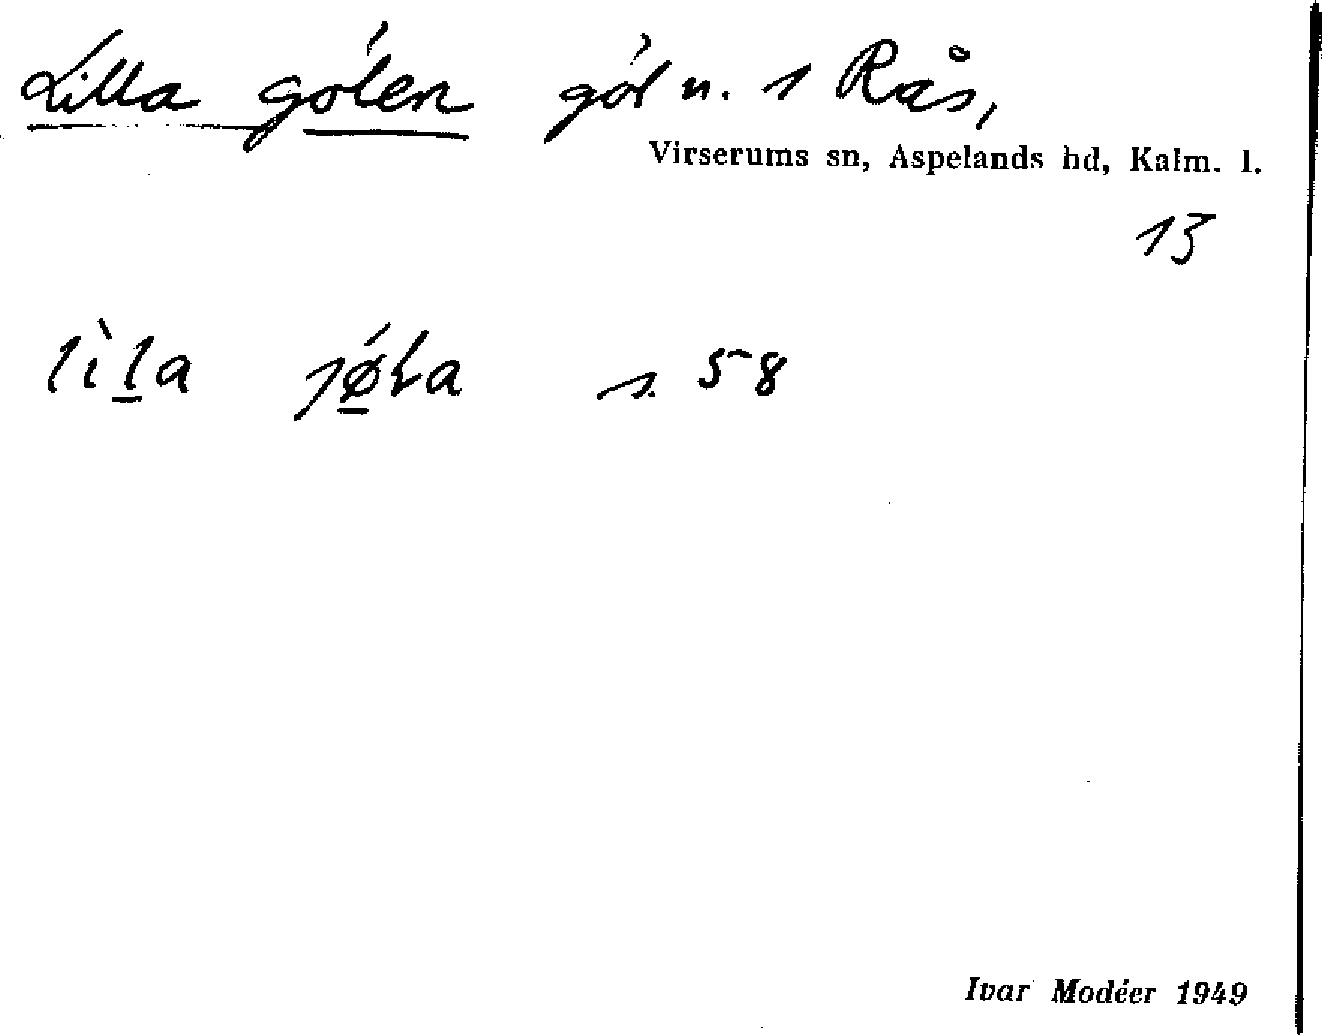 Lilla gölen göl n. 1 Rås,
Virserums sn, Aspelands hd, Kalm. l.
13
lìḻa jǿ̱ɫa s. 58
Ivar Modéer 1949